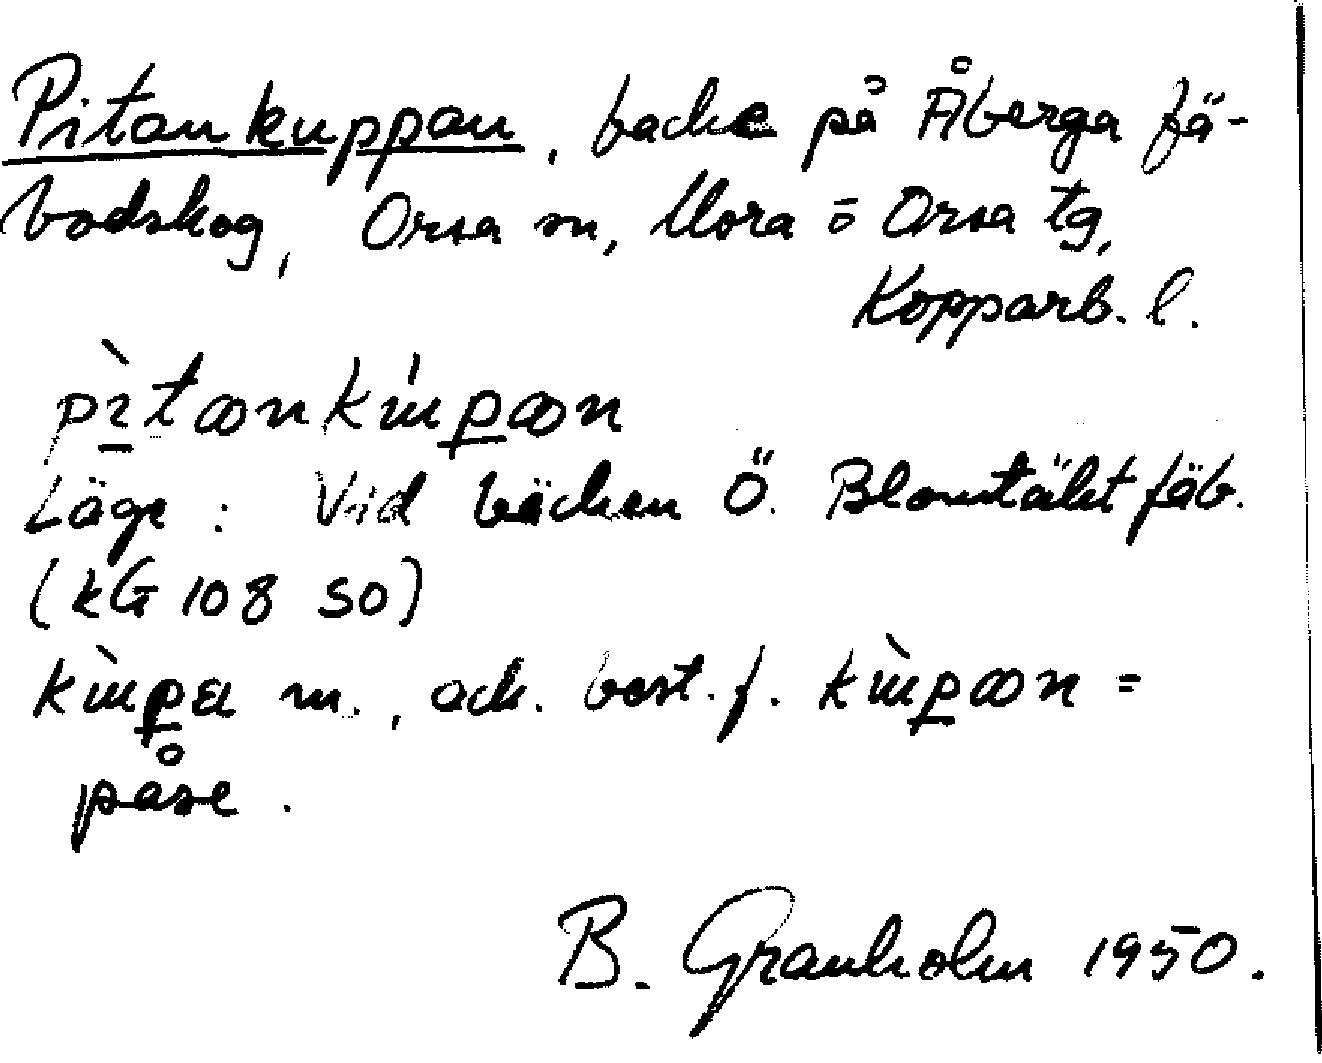 Pitankuppan, backe på Åberga fä-
bodskog, Orsa sn, Mora o Orsa tg,
Kopparb. l.
pìtanku̍pan
Läge: Vid bäcken Ö. Blomtäkt fäb.
(kG 108 SO)
kùpa m., ack. best. f. kùpan =
påse.
B. Granholm 1950.